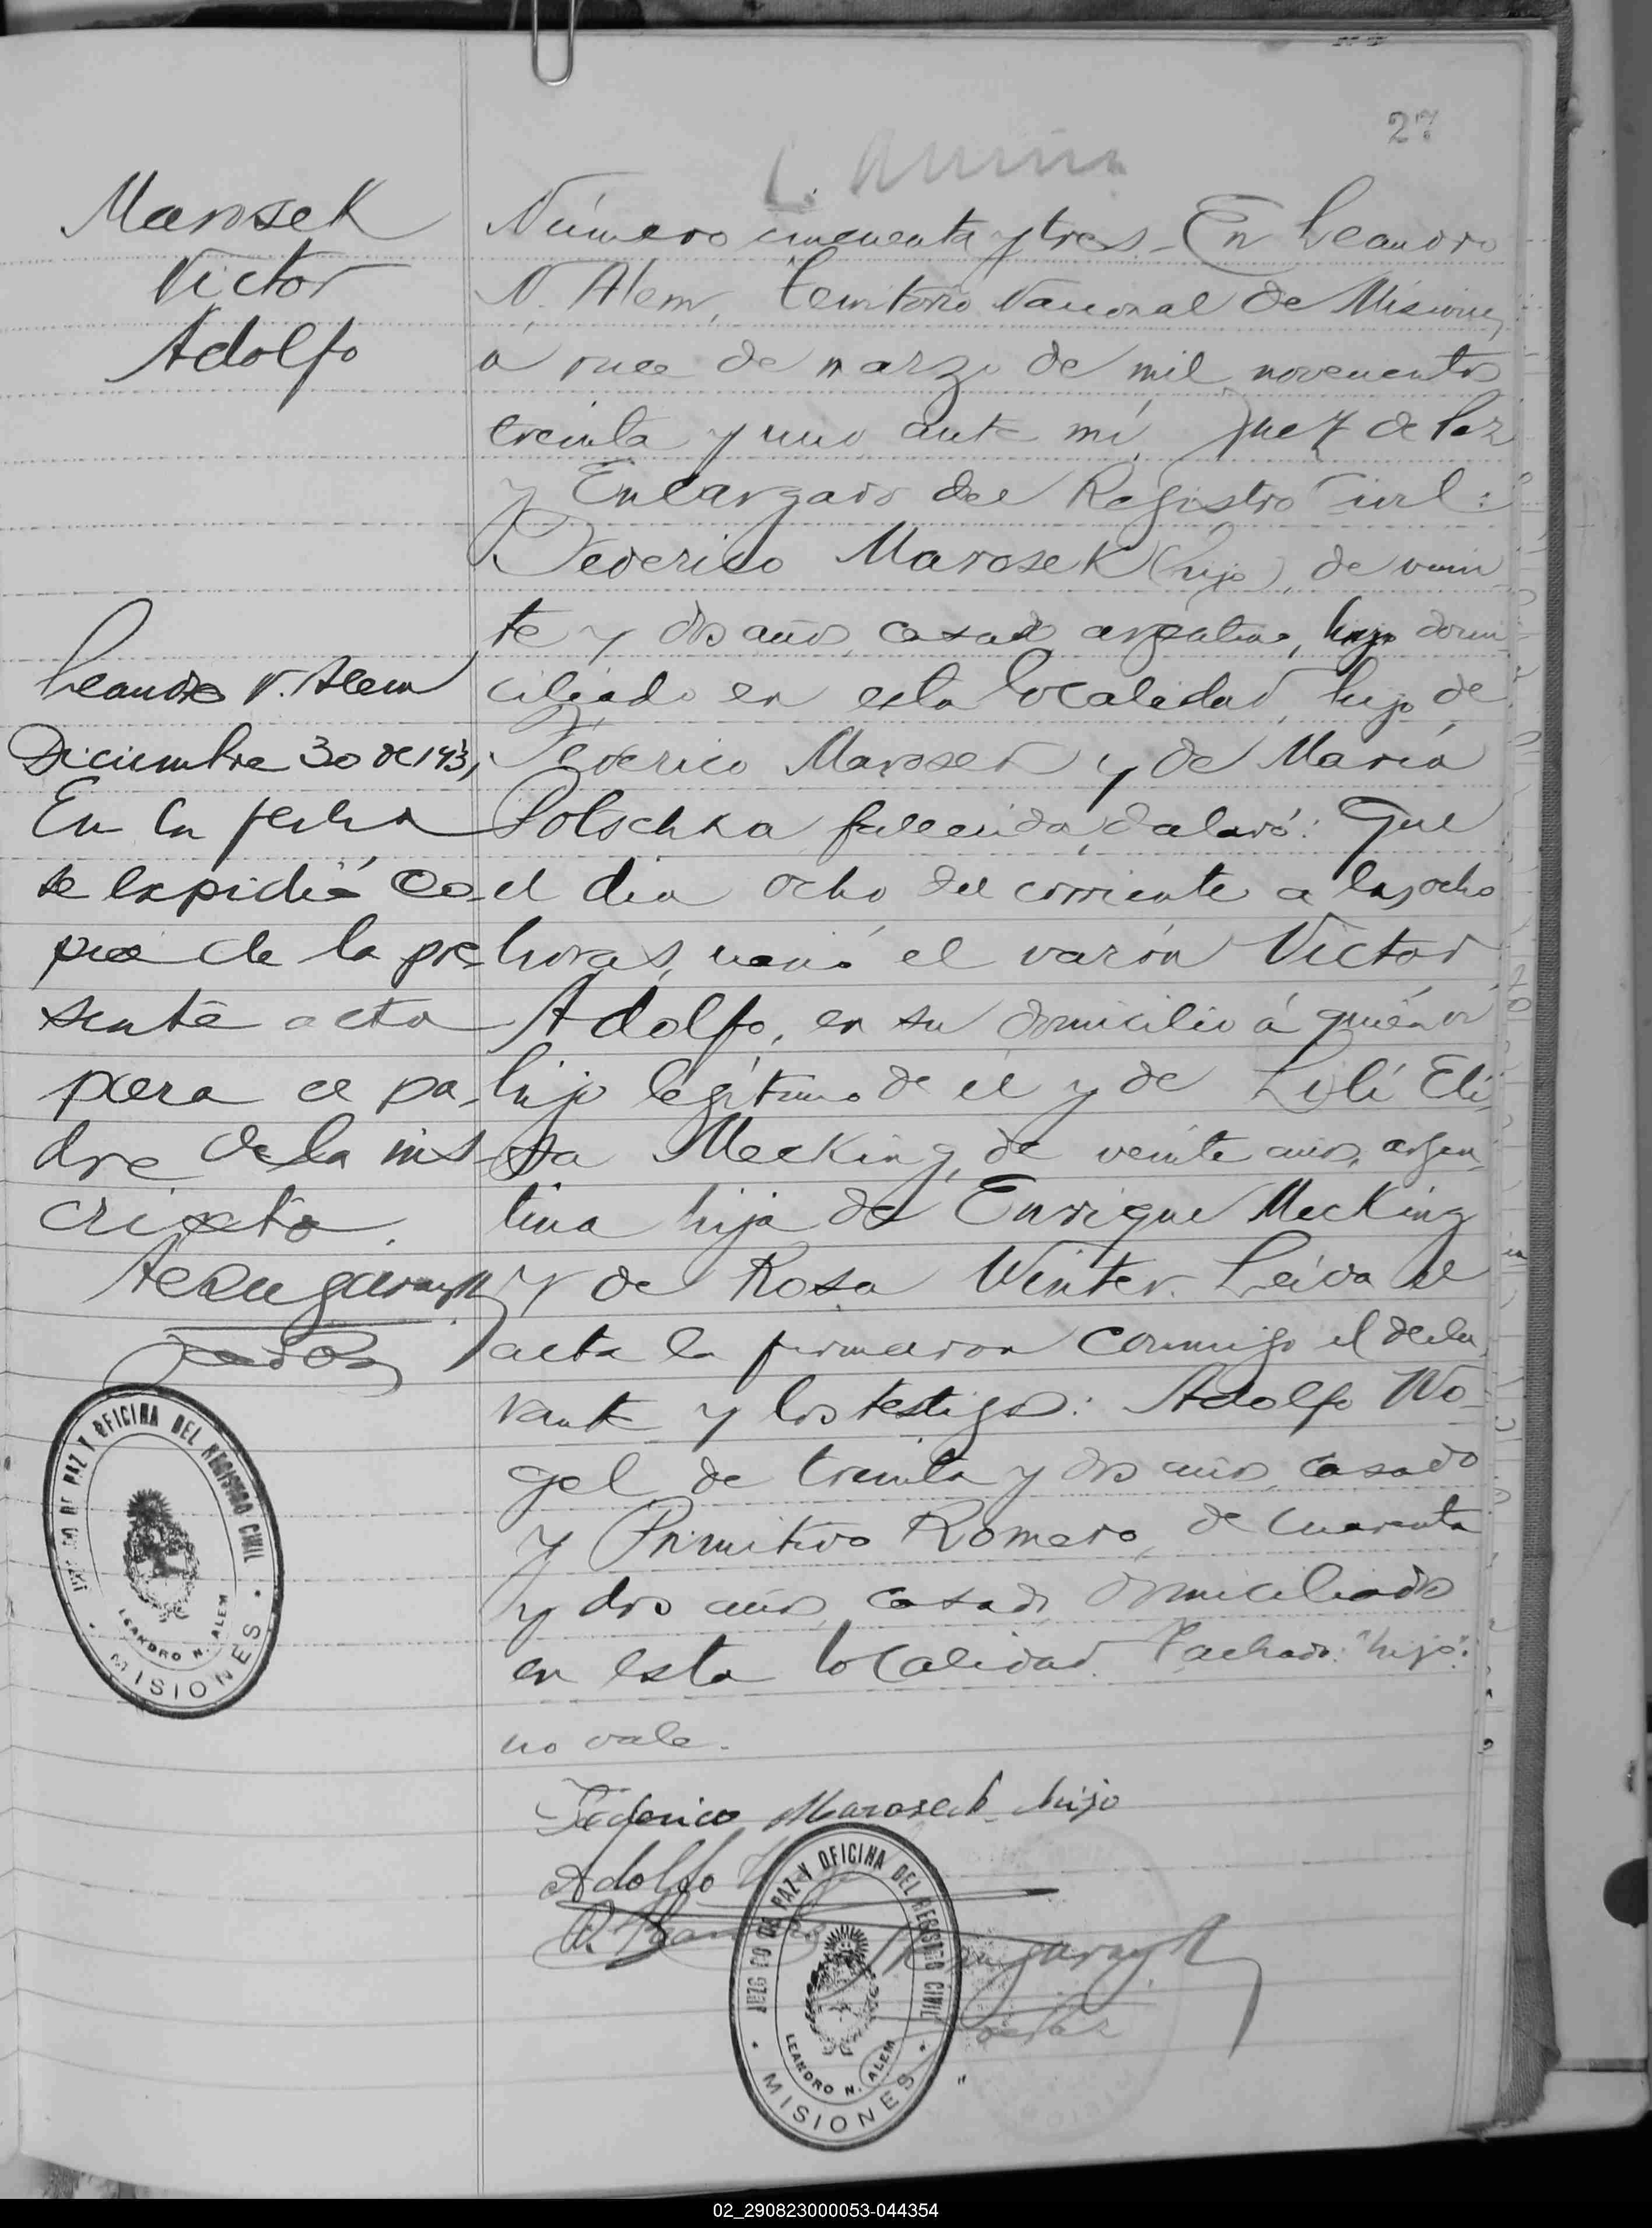 27
Marosek
Victor
Adolfo
Número cincuenta y tres.- En Leandro
N. Alem, Territorio Nacional de Misiones,
a once de marzo de mil novecientos
treinta y uno ante mí, Juez de Paz
y Encargado del Registro Civil:
Federico Marosek (hijo), de vein
te y dos años, casado argentino, hijo domi
ciliado en esta localidad, hijo de
Federico Marosek y de María
Polschka fallecida, declaró: Que
el día ocho del corriente a las ocho
horas, nació el varón Victor
Adolfo, en su domicilio á quien vi
hijo legítimo de él y de Lili Eli
sa Mecking, de veinte años, argen
tina hija de Enrique Mecking
y de Rosa Winter. Leída el
acta la firmaron conmigo el decla
rante y los testigos: Adolfo Wo-
gel de treinta y dos años, casado
y Primitivo Romero, de cuarenta
y dos años, casado, domiciliados
en esta localidad. Tachado: "hijo":
no vale.
Leandro N. Alem
Diciembre 30 de 1931
En la fecha
se expidió Co-
pia de la pre-
sente acta
para el pa-
dre de la ins
cripta.
JUZGADO DE PAZ Y OFICINA DEL REGISTRO CIVIL
LEANDRO N. ALEM
MISIONES
Federico Marosek hijo
Adolfo
JUZGADO DE PAZ Y OFICINA DEL REGISTRO CIVIL
LEANDRO N. ALEM
MISIONES
02_290823000053-044354